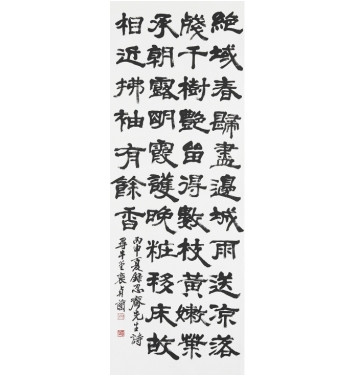 絕域春歸盡邊城雨送涼落
殘千樹艶留得數枝黃嫩葉
承朝露明霞護晚粧移床故
相近拂袖有餘香
丙申夏錄忍齋先生詩
尋牛